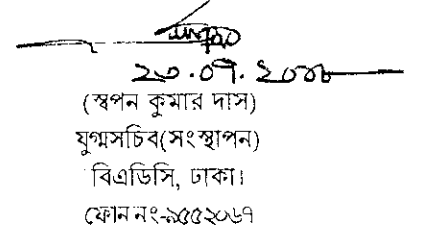 ২০.০৭.২০০৮
(স্বপন কুমার দাস)
যুগ্মসচিব(সংস্থাপন)
বিএডিসি, ঢাকা।
ফোন নং-৯৫৫২০৬৭